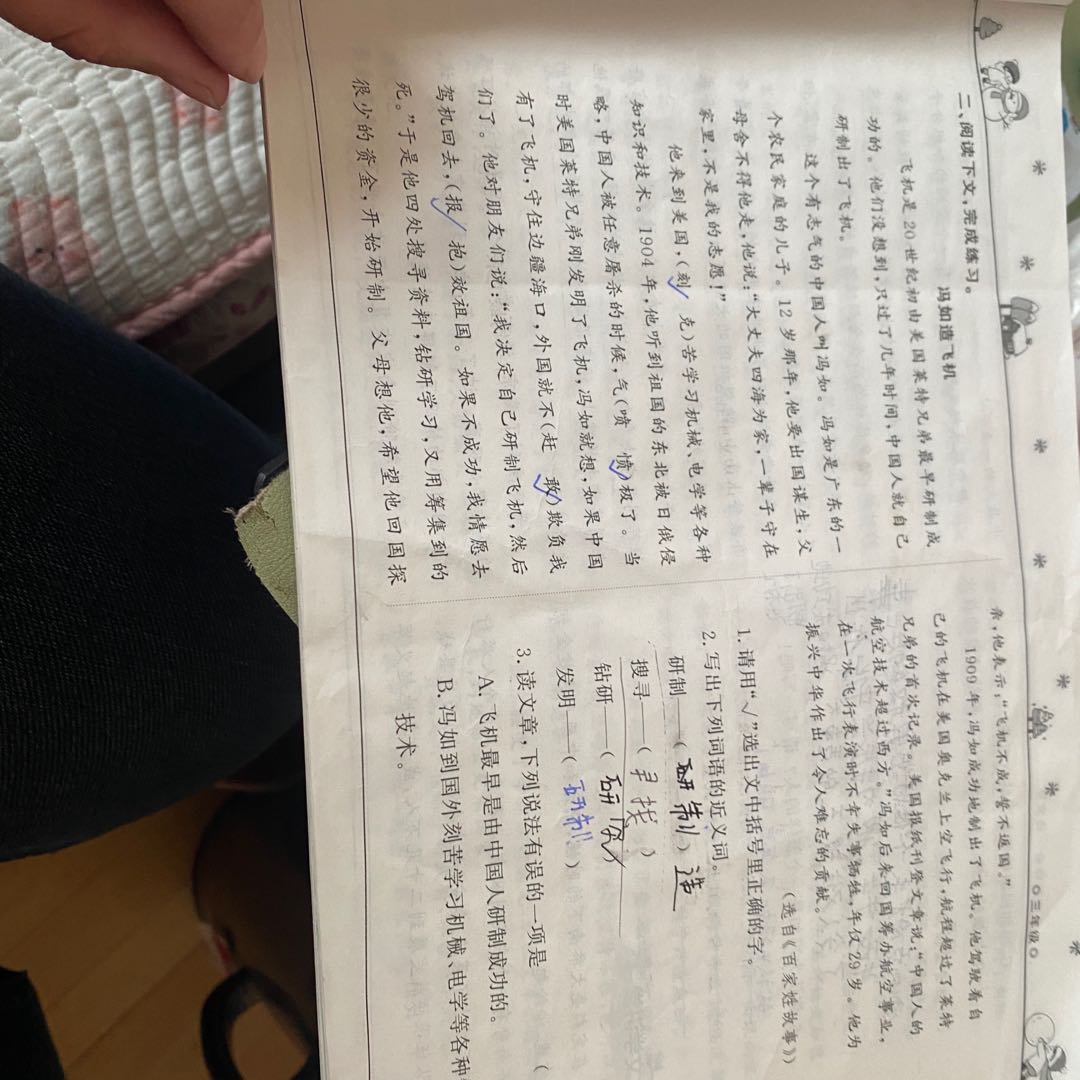 二、阅读下文,完成练习。
冯如造飞机
飞机是20世纪初由美国莱特兄弟最早研制成
功的。他们没想到,只过了几年时间,中国人就自己
研制出了飞机。
这个有志气的中国人叫冯如。冯如是广东的一
个农民家庭的儿子。12岁那年,他要出国谋生,父
母舍不得他走,他说:“大丈夫四海为家,一辈子守在
家里,不是我的志愿!”
他来到美国,(刻√ 克)苦学习机械、电学等各种
知识和技术。1904年,他听到祖国的东北被日俄侵
略,中国人被任意屠杀的时候,气(喷 愤√)极了。当
时美国莱特兄弟刚发明了飞机,冯如就想,如果中国
有了飞机,守住边疆海口,外国就不(赶 敢√)欺负我
们了。他对朋友们说:“我决定自己研制飞机,然后
驾机回去,(报√ 抱)效祖国。如果不成功,我情愿去
死。”于是他四处搜寻资料,钻研学习,又用筹集到的
很少的资金,开始研制。父母想他,希望他回国探
亲,他表示,“飞机不成,誓不返国。”
1909年,冯如成功地制出了飞机。他驾驶着自
己的飞机在美国奥克兰上空飞行,航程超过了莱特
兄弟的首次记录。美国报纸刊登文章说,“中国人的
航空技术超过西方。”冯如后来回国筹办航空事业,
在一次飞行表演时不幸失事牺牲,年仅29岁。他为
振兴中华作出了令人难忘的贡献。
(选自《百家姓故事》)
1. 请用“√”选出文中括号里正确的字。
2. 写出下列词语的近义词。
研制——(研制)造
搜寻——(寻找)
钻研——(研究)
发明——(研制)
3. 读文章,下列说法有误的一项是 (
A. 飞机最早是由中国人研制成功的。
B. 冯如到国外刻苦学习机械、电学等各种
技术。
三年级